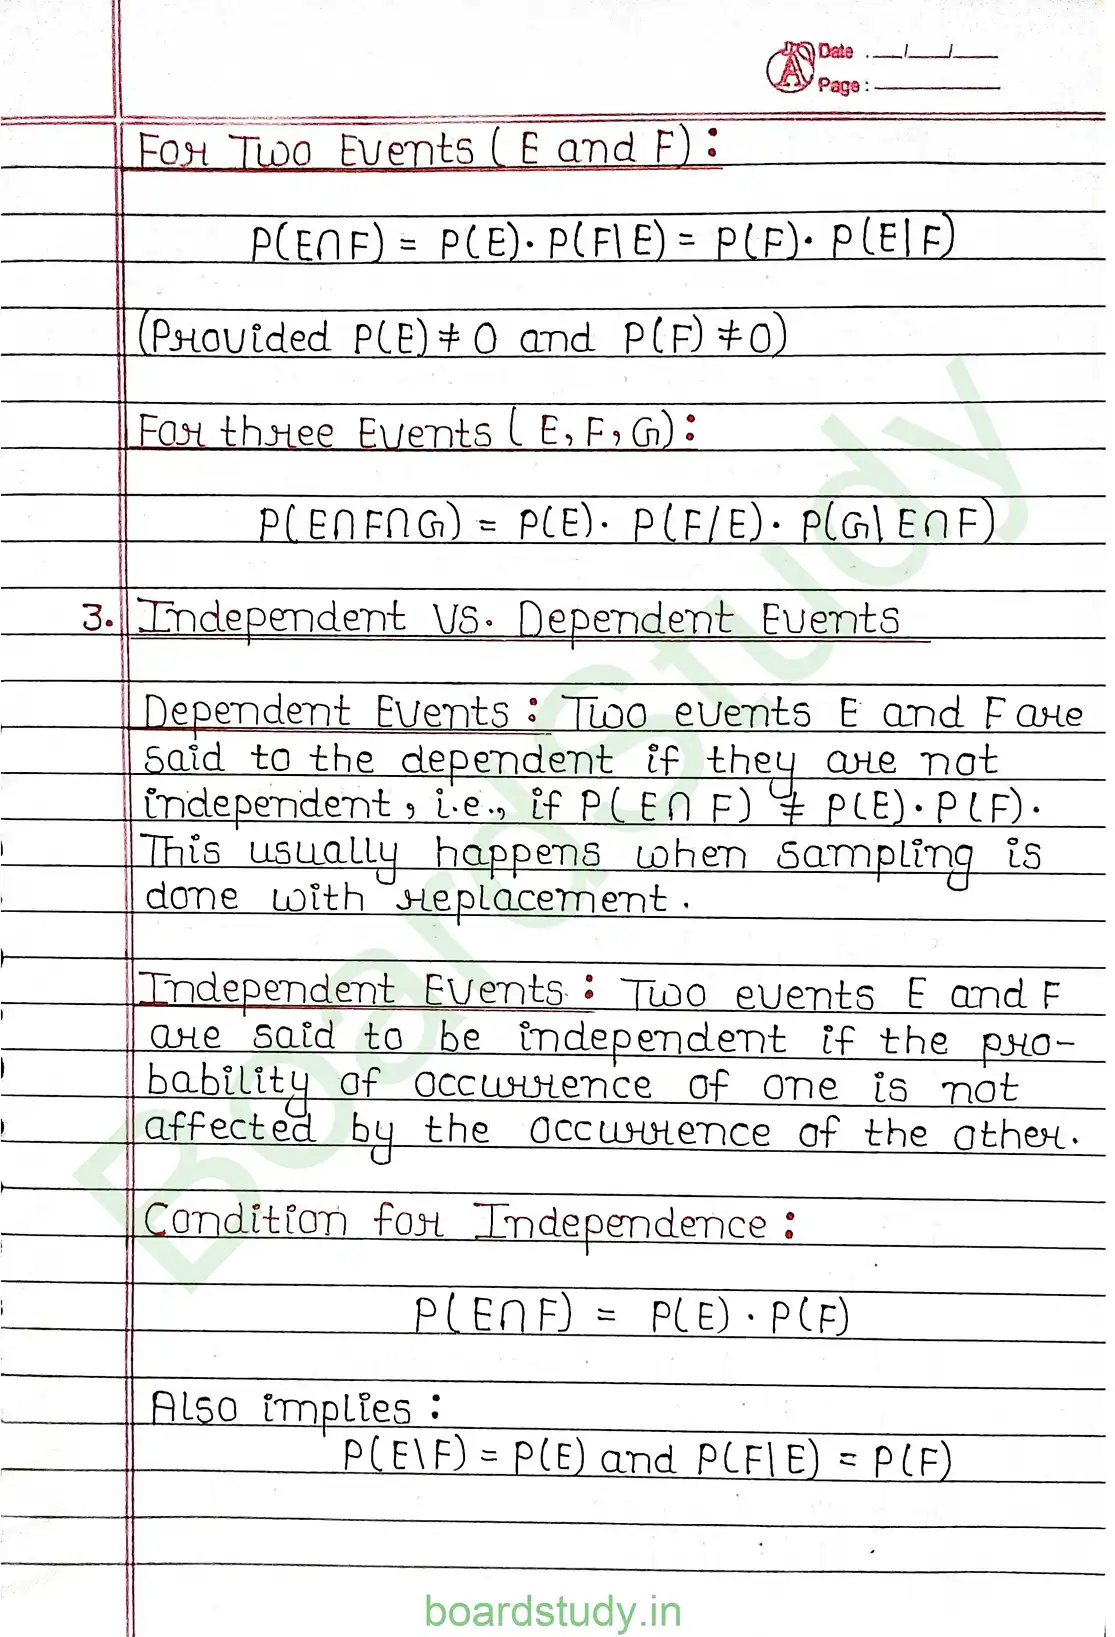 Date : __/__/__
Page :
For Two Events ( E and F) :
P(E∩F) = P(E)· P(F\E) = P(F)· P(E|F)
(Provided P(E) ≠ 0 and P(F) ≠ 0)
For three Events ( E, F, G) :
P(E∩F∩G) = P(E)· P(F/E)· P(G\E∩F)
3. Independent VS. Dependent Events
Dependent Events : Two events E and F are
said to the dependent if they are not
independent, i.e., if P(E∩F) ≠ P(E)·P(F).
This usually happens when sampling is
done with replacement.
Independent Events : Two events E and F
are said to be independent if the pro-
bability of occurrence of one is not
affected by the occurrence of the other.
Condition for Independence :
P(E∩F) = P(E) · P(F)
Also implies :
P(E\F) = P(E) and P(F\E) = P(F)
BoardStudy
boardstudy.in